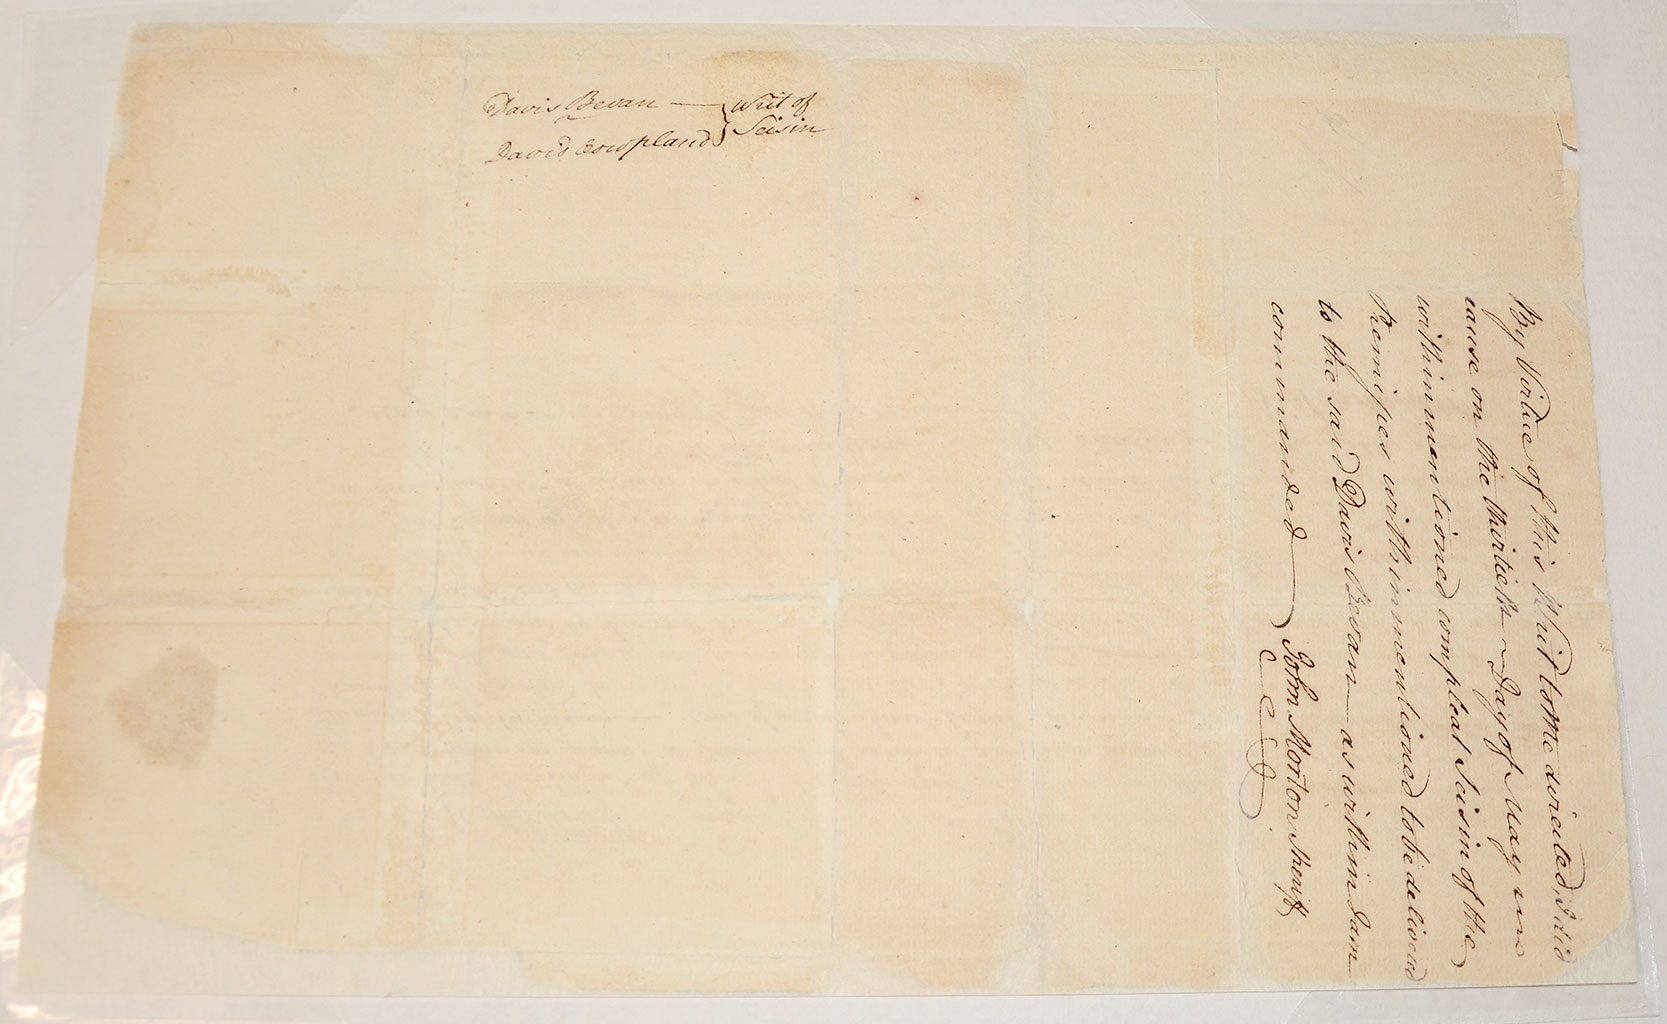 Davis Bevan — } Writ of
David Cowpland } Seisin
By Virtue of this Writ to me directed, I did
cause on the thirtieth ~ Day of May in
within mentioned compleat Seisin of the
Premises within mentioned to be delivered
to the said Davis Bevan — as within I am
commanded —
John Morton Sheriff